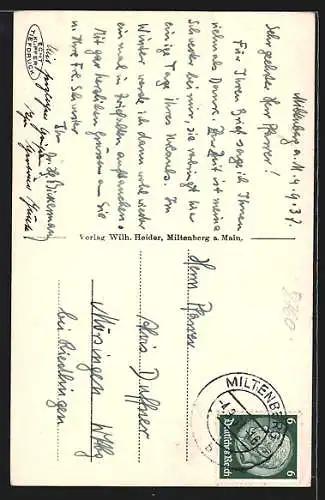 Miltenberg a. M. 4.9.37.
Sehr geehrter Herr Pfarrer!
Für Ihren Brief sage ich Ihnen
vielmals Danke. Zur Zeit ist meine
Schwester bei mir, sie verbringt hier
einige Tage ihres Urlaubs. Im
Winter werde ich dann wohl wieder
einmal in auftauchen.
Mit gar herzlichen Grüssen an Sie
u. Ihre Frl. Schwester
Ihr
Mit Grüßen
ECHT
KUPFER-
TIEFDRUCK
Verlag Wilh. Heider, Miltenberg a. Main.
Herrn Pfarrer
Alois Duffner
Mörsingen Wttbg
bei Riedlingen
MILTENBERG
Deutsches Reich
6 6